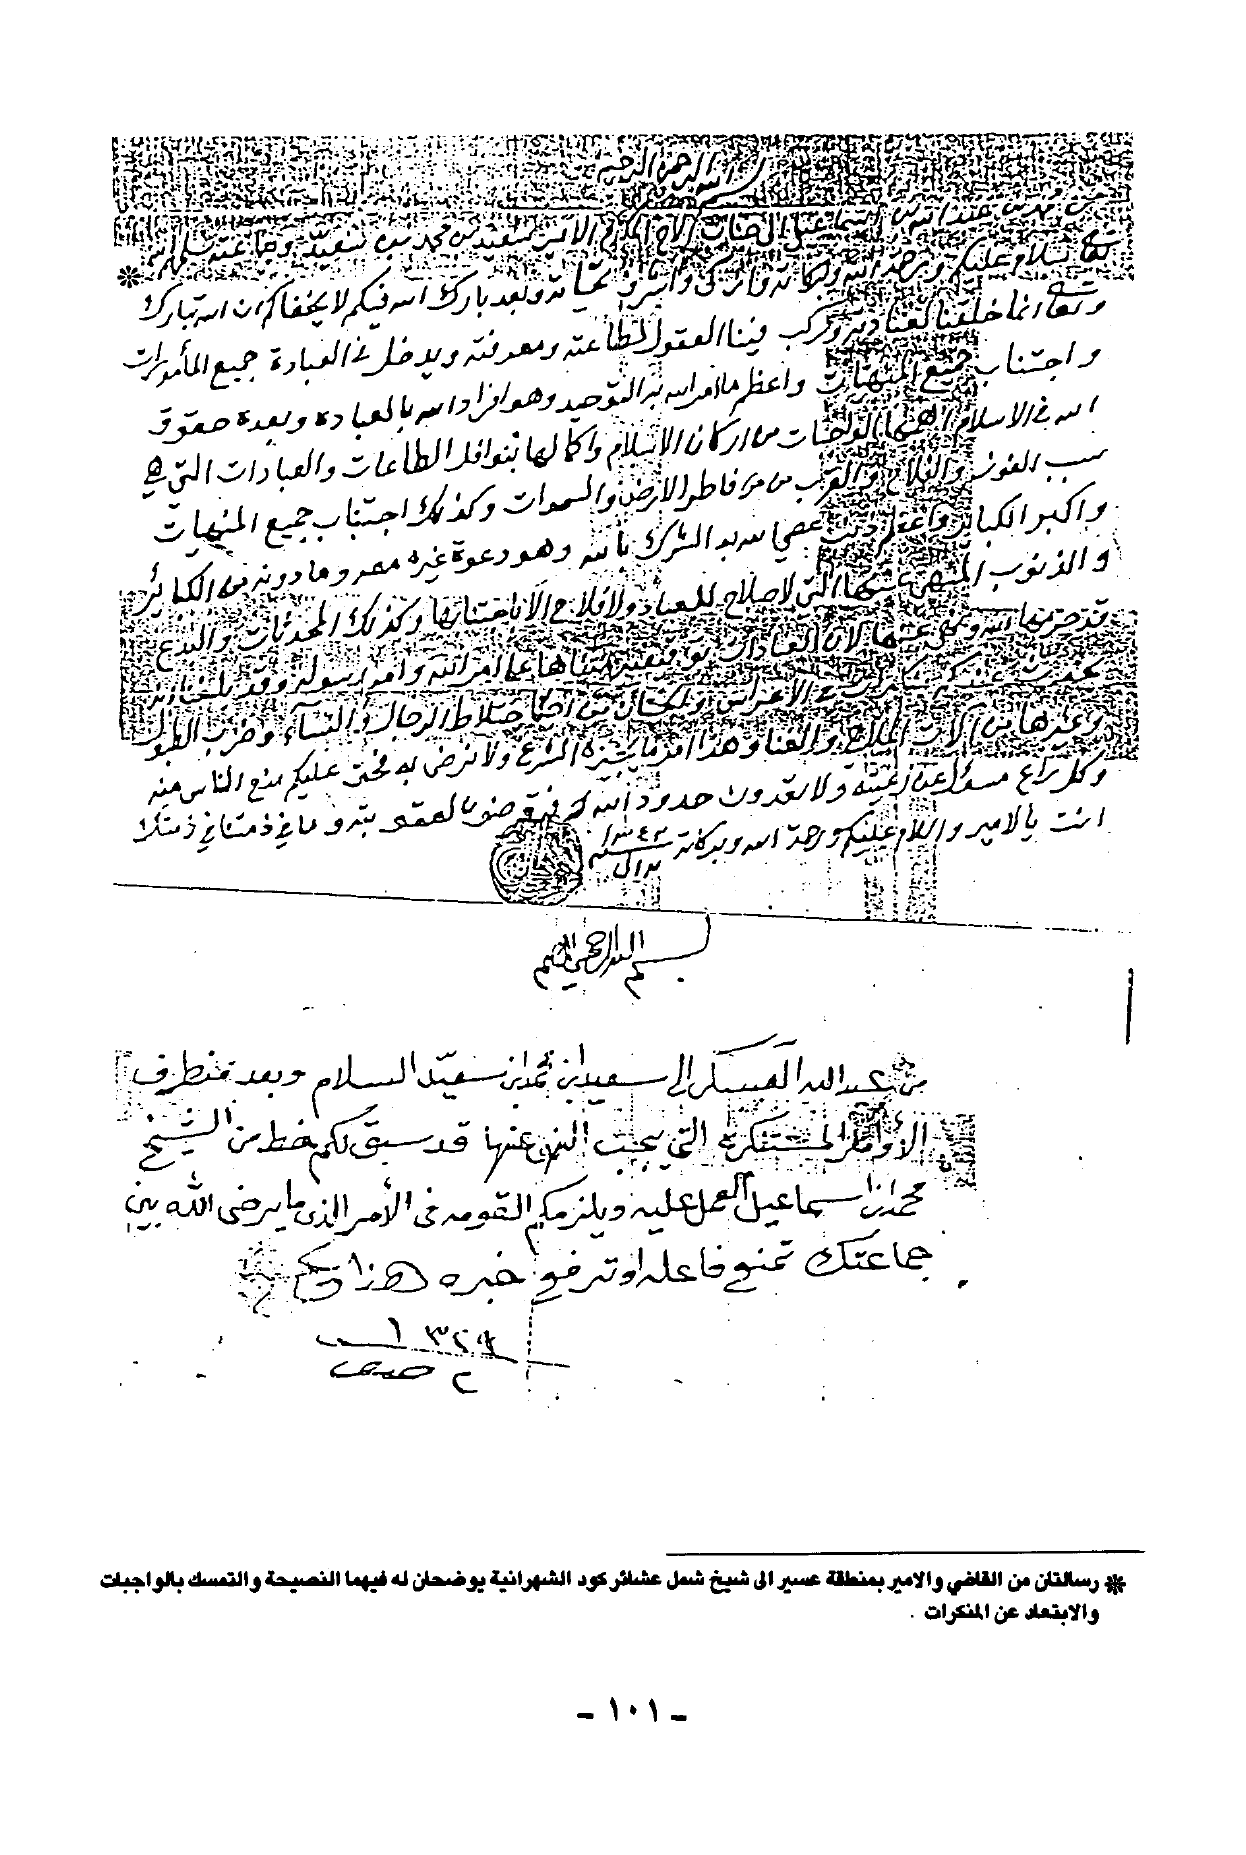 بسم الله الرحمن الرحيم
من محمد بن عبد الله بن اسماعيل الى جناب الاخ المكرم الامير سعيد بن محمد بن سعيد وجماعته سلمهم الله
تعالى سلام عليكم ورحمة الله وبركاته وازكى واشرف تحياته وبعد بارك الله فيكم لا يخفاكم ان الله تبارك
وتعالى انما خلقنا لعبادته وركب فينا العقول لطاعته ومعرفته ويدخل في العبادة جميع المأمورات
واجتناب جميع المنهيات واعظم ما امر الله به التوحيد وهو افراد الله بالعباده وبعده حقوق
الله في الاسلام الواجبات من اركان الاسلام واكمالها بنوافل الطاعات والعبادات التي هي
سبب الفوز والفلاح والقرب من فاطر الارض والسموات وكذلك اجتناب جميع المنهيات
واكبر الكبائر واعظم ذنب عصي الله به الشرك بالله وهو دعوة غيره معه وما دونه من الكبائر
والذنوب المنهي عنها التي لا صلاح للعباد ولا فلاح الا باجتنابها وكذلك المحدثات والبدع
قد حرمها الله ونهى عنها لان العبادات توقيفية مبناها على امر الله وامر رسوله وقد بلغنا انه
يحدث عندكم منكرات في الاعراس من اختلاط الرجال والنساء وضرب الطبول
وغيرها من آلات الملاهي والغنا وهذا امر ما يقره الشرع ولا نرضى به فحق عليكم منع الناس منه
وكل راع مسؤل عن رعيته ولا يعتدون حدود الله وما في ذمتنا في ذمتك
انت يالامير والسلام عليكم ورحمة الله وبركاته
بسم الله الرحمن الرحيم
من عبد الله العسكر الى سعيد ابن محمد ابن سعيد السلام وبعد منطرف
الأوامر المستنكره التي يجب النهي عنها قد سبق لكم خط من الشيخ
محمد ابن اسماعيل العمل عليه ويلزمكم القومه في الأمر الذي ما يرضى الله بين
جماعتك تمنع فاعله او ترفع خبره هذا
* رسالتان من القاضي والامير بمنطقة عسير الى شيخ شمل عشائر كود الشهرانية يوضحان له فيهما النصيحة والتمسك بالواجبات
والابتعاد عن المنكرات .
- ١٠١ -